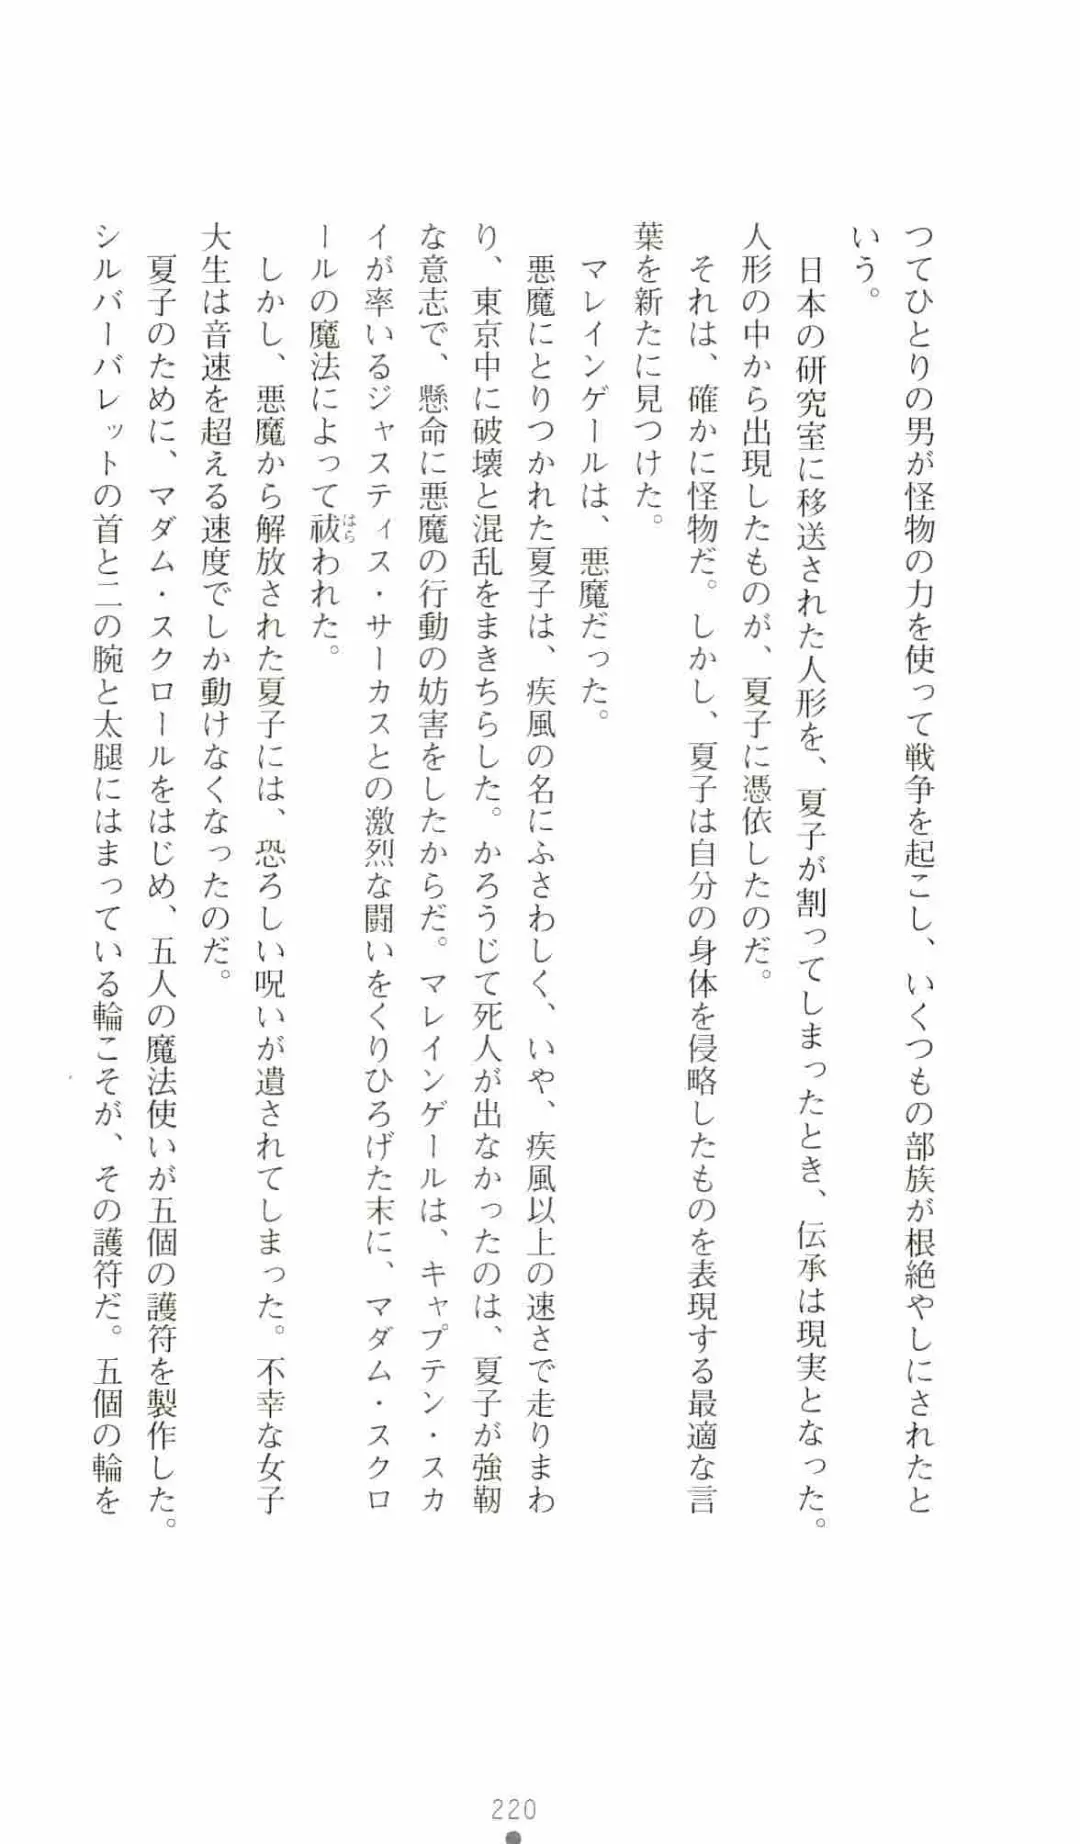 つてひとりの男が怪物の力を使って戦争を起こし、いくつもの部族が根絶やしにされたと
いう。
日本の研究室に移送された人形を、夏子が割ってしまったとき、伝承は現実となった。
人形の中から出現したものが、夏子に憑依したのだ。
それは、確かに怪物だ。しかし、夏子は自分の身体を侵略したものを表現する最適な言
葉を新たに見つけた。
マレインゲールは、悪魔だった。
悪魔にとりつかれた夏子は、疾風の名にふさわしく、いや、疾風以上の速さで走りまわ
り、東京中に破壊と混乱をまきちらした。かろうじて死人が出なかったのは、夏子が強靭
な意志で、懸命に悪魔の行動の妨害をしたからだ。マレインゲールは、キャプテン・スカ
イが率いるジャスティス・サーカスとの激烈な闘いをくりひろげた末に、マダム・スクロ
ールの魔法によって祓われた。
はら
しかし、悪魔から解放された夏子には、恐ろしい呪いが遺されてしまった。不幸な女子
大生は音速を超える速度でしか動けなくなったのだ。
夏子のために、マダム・スクロールをはじめ、五人の魔法使いが五個の護符を製作した。
シルバーバレットの首と二の腕と太腿にはまっている輪こそが、その護符だ。五個の輪を
220